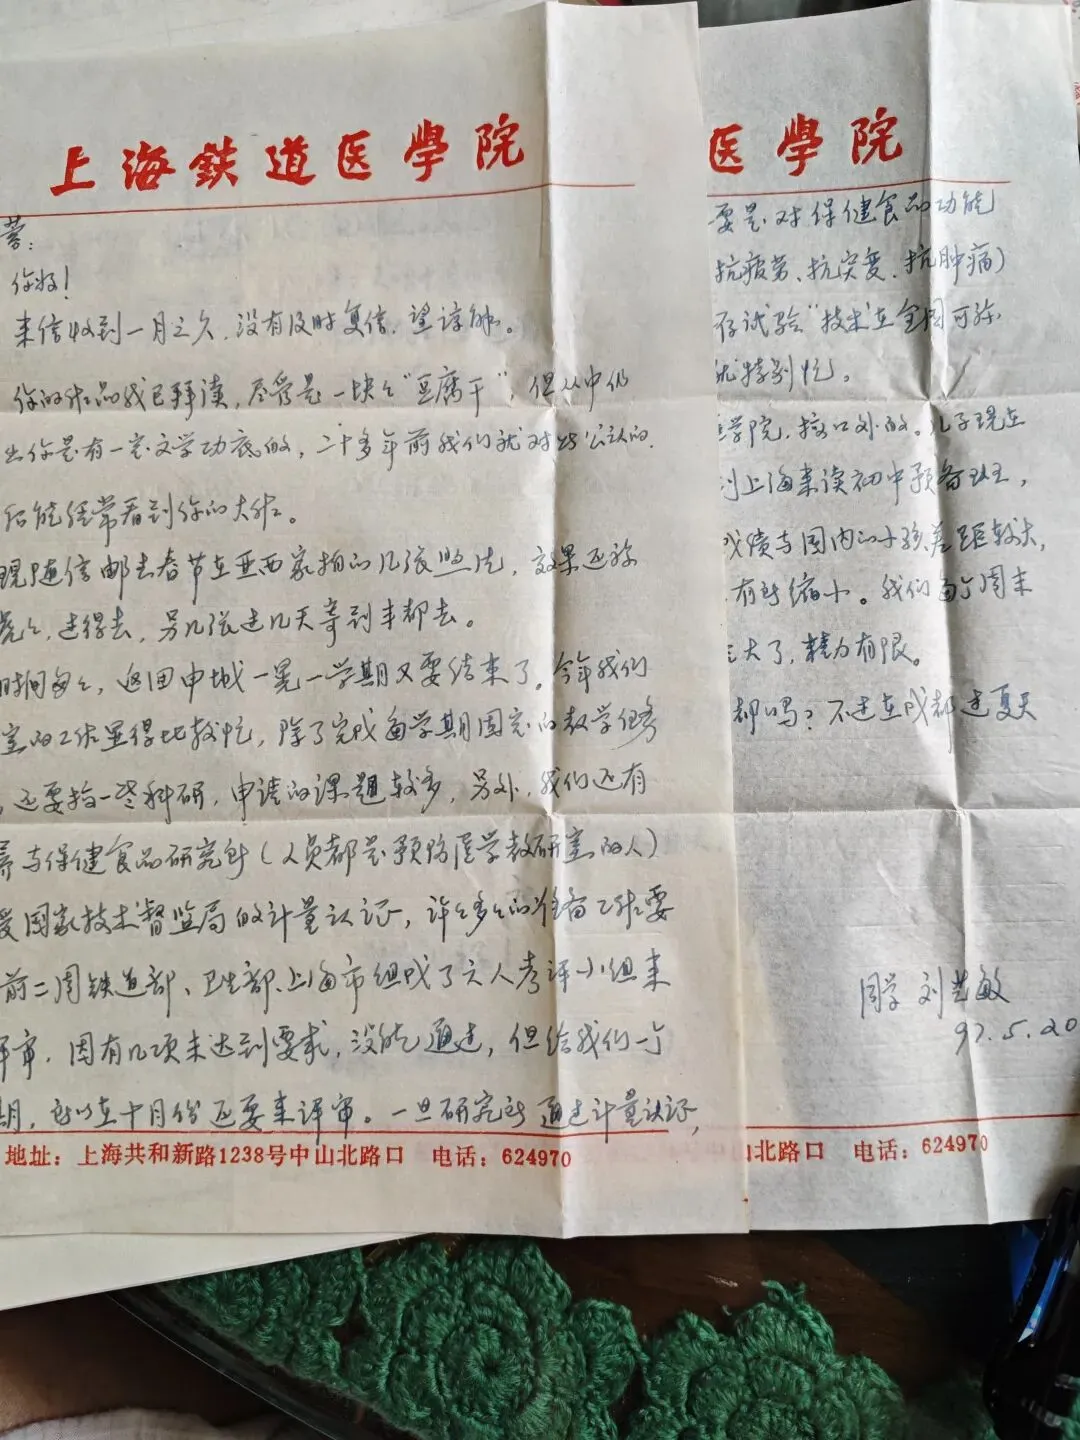 上海鉄道医學院
蓉：
你好！
来信收到一月之久，没有及时复信，望谅解。
你的作品我已拜读，尽管是一块々“豆腐干”，但从中仍
出你是有一定文学功底的，二十多年前我们就对此公认的.
后能经常看到你的大作。
现随信邮去春节在亚西家拍的几张照片，效果还称
虎々，过得去，另几张过几天寄到丰都去。
时间匆々，返回申城一晃一学期又要结束了。今年我们
室的工作显得比较忙，除了完成每学期固定的教学任务
，还要搞一些科研，申请的课题较多，另外，我们还有
养与保健食品研究所（人员都是预防医学教研室的人）
受国家技术督监局的计量认证，许々多々的准备工作要
前二周铁道部、卫生部、上海市组成了六人考评小组来
评审，因有几项未达到要求，没能通过，但给我们一个
期，所以在十月份还要来评审。一旦研究所通过计量认证，
地址：上海共和新路1238号中山北路口 电话：624970
医學院
要是对保健食品功能
抗疲劳、抗突变、抗肿瘤）
存试验”技术在全国可称
就特别忙。
医学院，搞口外的。儿子现在
到上海来读初中预备班，
成绩与国内的小孩差距较大，
有所缩小。我们每个周末
大了，精力有限。
都吗？不过在成都过夏天
同学 刘艺敏
97.5.20
山北路口 电话：624970